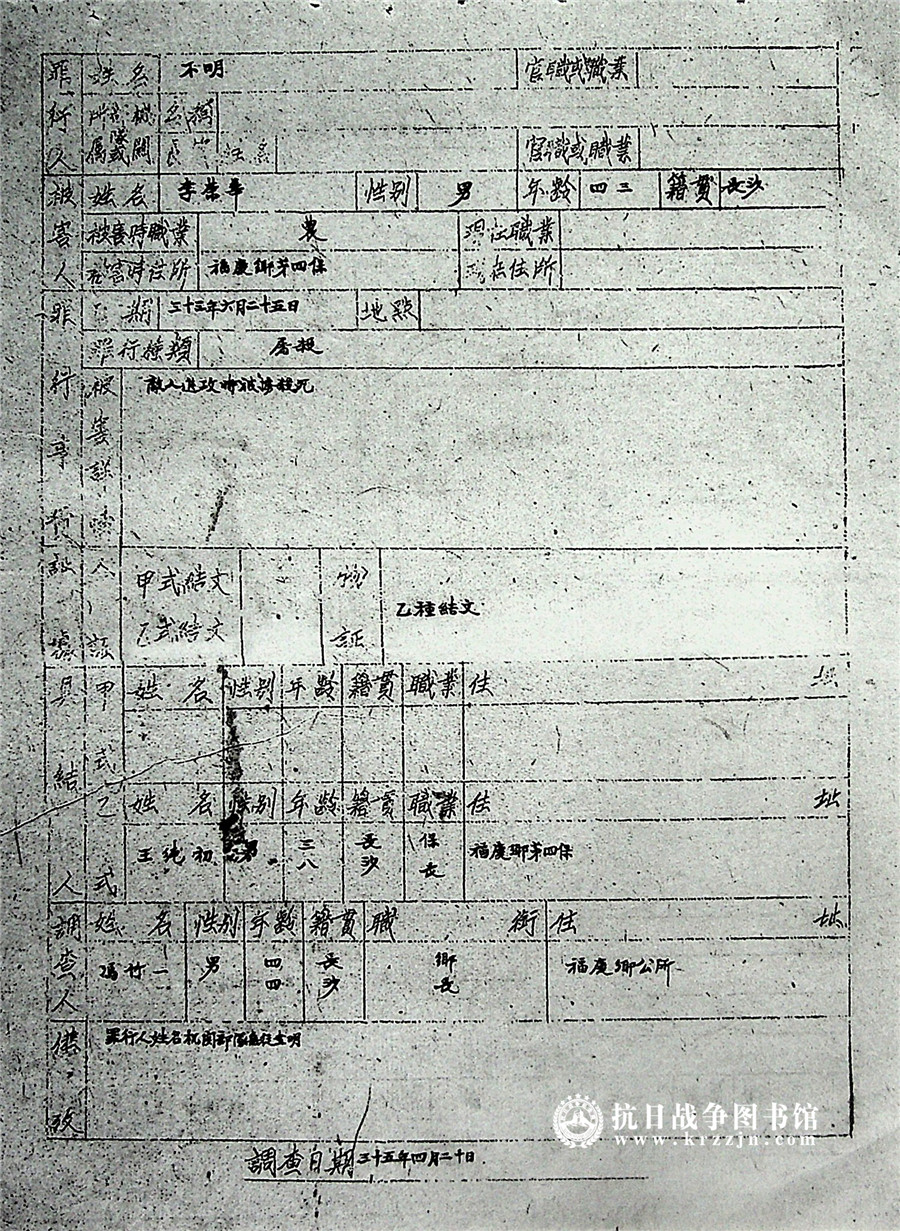 罪行人 姓名 不明 官職或職業
所屬機關或部隊 名稱
長官姓名 官職或職業
被害人 姓名 李 性別 男 年齡 四三 籍貫 長沙
被害時職業 農 現在職業
被害時住所 福慶鄉第四保 現在住所
罪行事實 日期 三十三年六月二十五日 地點
罪行種類 屠殺
被害詳情 敵人進攻時被 殺死
證據 人証 甲式結文 乙式結文 物証 乙種結文
具結人 甲式 姓名 性別 年齡 籍貫 職業 住址
乙式 姓名 性別 年齡 籍貫 職業 住址
王純初 三八 長沙 保長 福慶鄉第四保
調查人 姓名 性別 年齡 籍貫 職銜 住址
馮竹一 男 四四 長沙 鄉長 福慶鄉公所
備攷 罪行人姓名机関部隊無從查明
調查日期 三十五年四月二十日
抗日战争图书馆
www.krzzjn.com